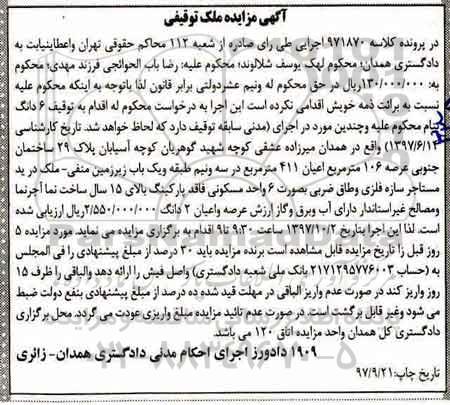 آگهی مزایده ملک توقیفی
در پرونده کلاسه ۹۷۱۸۷۰ اجرایی طی رای صادره از شعبه ۱۱۲ محاکم حقوقی تهران واعطاینیابت به
دادگستری همدان؛ محکوم لهک یوسف شلالوند؛ محکوم علیه: رضا باب الحوائجی فرزند مهدی؛ محکوم
به: ۱۳۰/۰۰۰/۰۰۰ریال در حق محکوم له ونیم عشردولتی برابر قانون لذا باتوجه به اینکه محکوم علیه
نسبت به برائت ذمه خویش اقدامی نکرده است این اجرا به درخواست محکوم له اقدام به توقیف ۶ دانگ
بنام محکوم علیه وچندین مورد در اجرای (مدنی سابقه توقیف دارد که لحاظ خواهد شد. تاریخ کارشناسی
۱۳۹۷/۶/۱۳) واقع در همدان میرزاده عشقی کوچه شهید گوهریان کوچه آسیابان پلاک ۲۹ ساختمان
جنوبی عرصه ۱۰۶ مترمربع اعیان ۴۱۱ مترمربع در سه ونیم طبقه ویک باب زیرزمین منفی- ملک در ید
مستاجر سازه فلزی وطاق ضربی بصورت ۶ واحد مسکونی فاقد پارکینگ بالای ۱۵ سال ساخت نما آجرنما
ومصالح غیراستاندار دارای آب وبرق وگاز ارزش عرصه واعیان ۲ دانگ ۲/۵۵۰/۰۰۰/۰۰۰ریال ارزیابی شده
است. لذا این اجرا بتاریخ ۱۳۹۷/۱۰/۲ ساعت ۹:۳۰ تا۹ اقدام به برگزاری مزایده می نماید مورد مزایده ۵
روز قبل زا تاریخ مزایده قابل مشاهده است برنده مزایده باید ۳۰ درصد از مبلغ پیشنهادی را فی المجلس
به (حساب ۲۱۷۱۲۹۵۷۷۶۰۰۳ بانک ملی شعبه دادگستری) واصل فیش را ارائه دهد والباقی را ظرف ۱۵
روز واریز کند در صورت عدم واریز الباقی در مهلت قید شده ده درصد از مبلغ پیشنهادی بنفع دولت ضبط
می شود وغیر قابل برگشت است. در صورت عدم تائید مزایده مبلغ واریزی عودت می گردد. محل برگزاری
دادگستری کل همدان واحد مزایده اتاق ۱۲۰ می باشد.
۱۹۰۹ دادورز اجرای احکام مدنی دادگستری همدان- زائری
تاریخ چاپ: ۹۷/۹/۲۱
۰۲۱-۸۸۳۴۹۶۷۰-۵